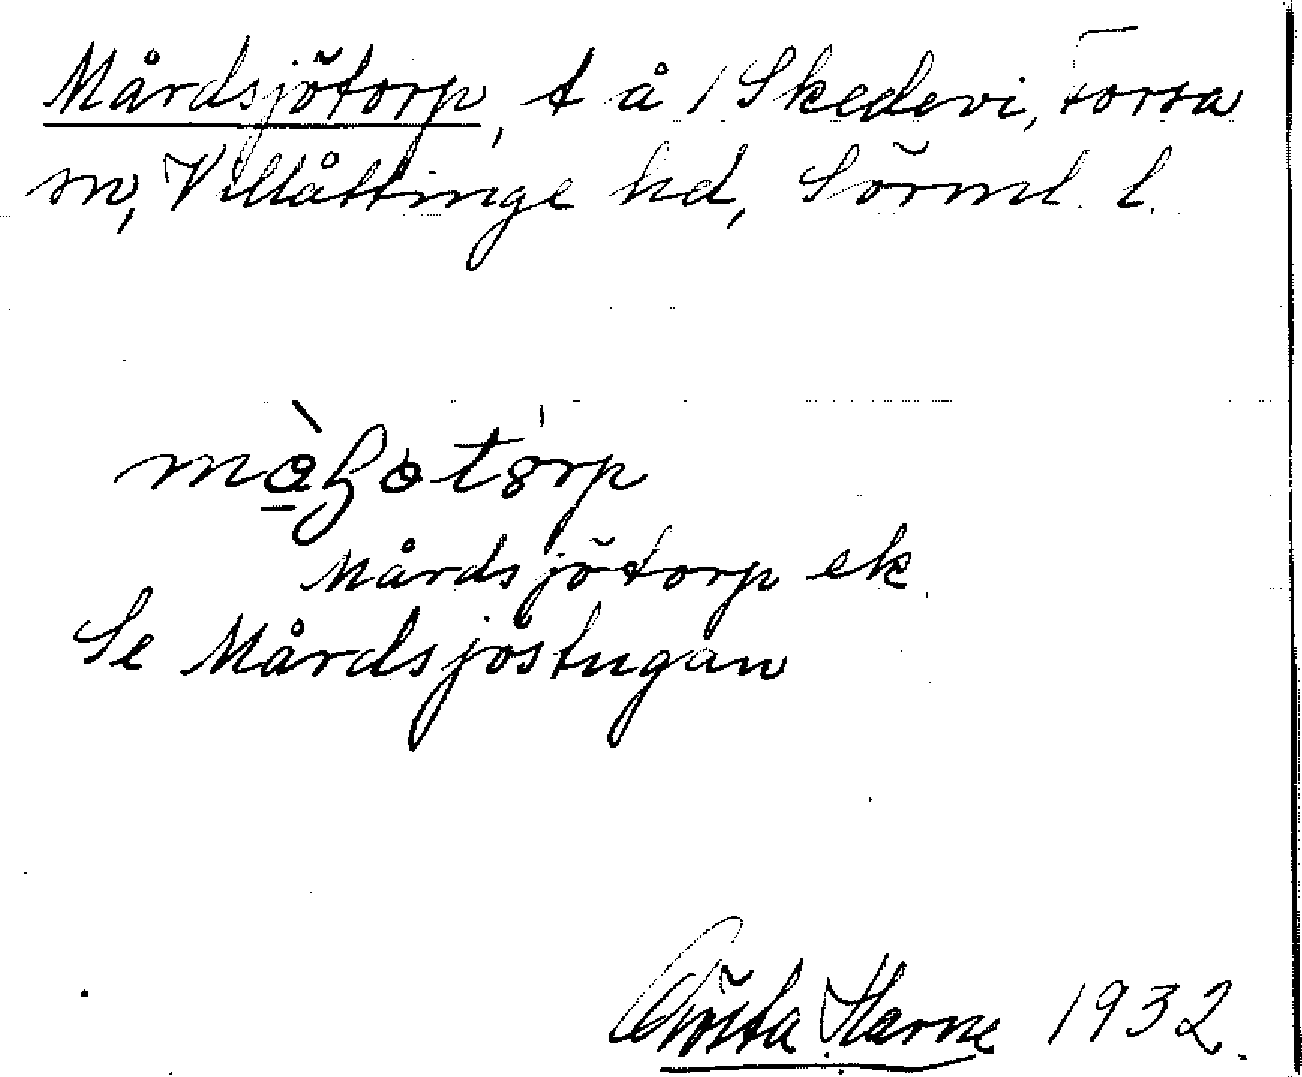 Mårdsjötorp, t å 1 Skedevi, Forssa
sn, Villåttinge hd, Sörml. l.
Mårdsjötorp ek.
Se Mårdsjöstugan
Gösta Harne 1932.